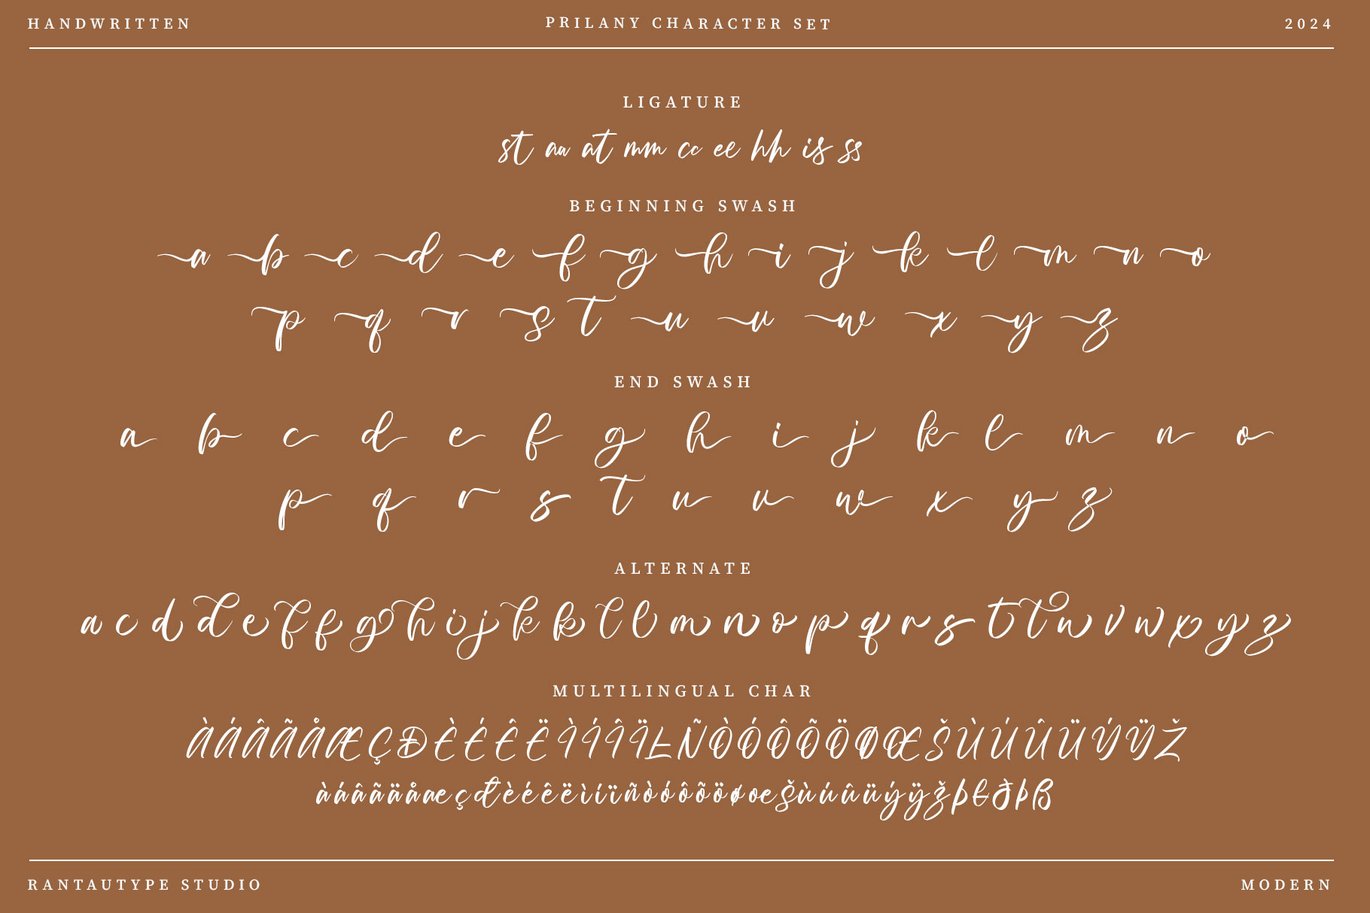 HANDWRITTEN PRILANY CHARACTER SET 2024
LIGATURE
st au at mm cc ee hh is ss
BEGINNING SWASH
a b c d e f g h i j k l m n o
p q r s t u v w x y z
END SWASH
a b c d e f g h i j k l m n o
p q r s t u v w x y z
ALTERNATE
a c d d e f f g h i j k k l l m n o p q r s t t u v w x y z
MULTILINGUAL CHAR
ÀÁÂÃÅÆÇÐÈÉÊËÌÍÎÏŁÑÒÓÔÕÖØŒŠÙÚÛÜÝŸŽ
àáâãäåæçđèéêëìíïñòóôõöøœšùúûüýÿžþłðþß
RANTAUTYPE STUDIO MODERN